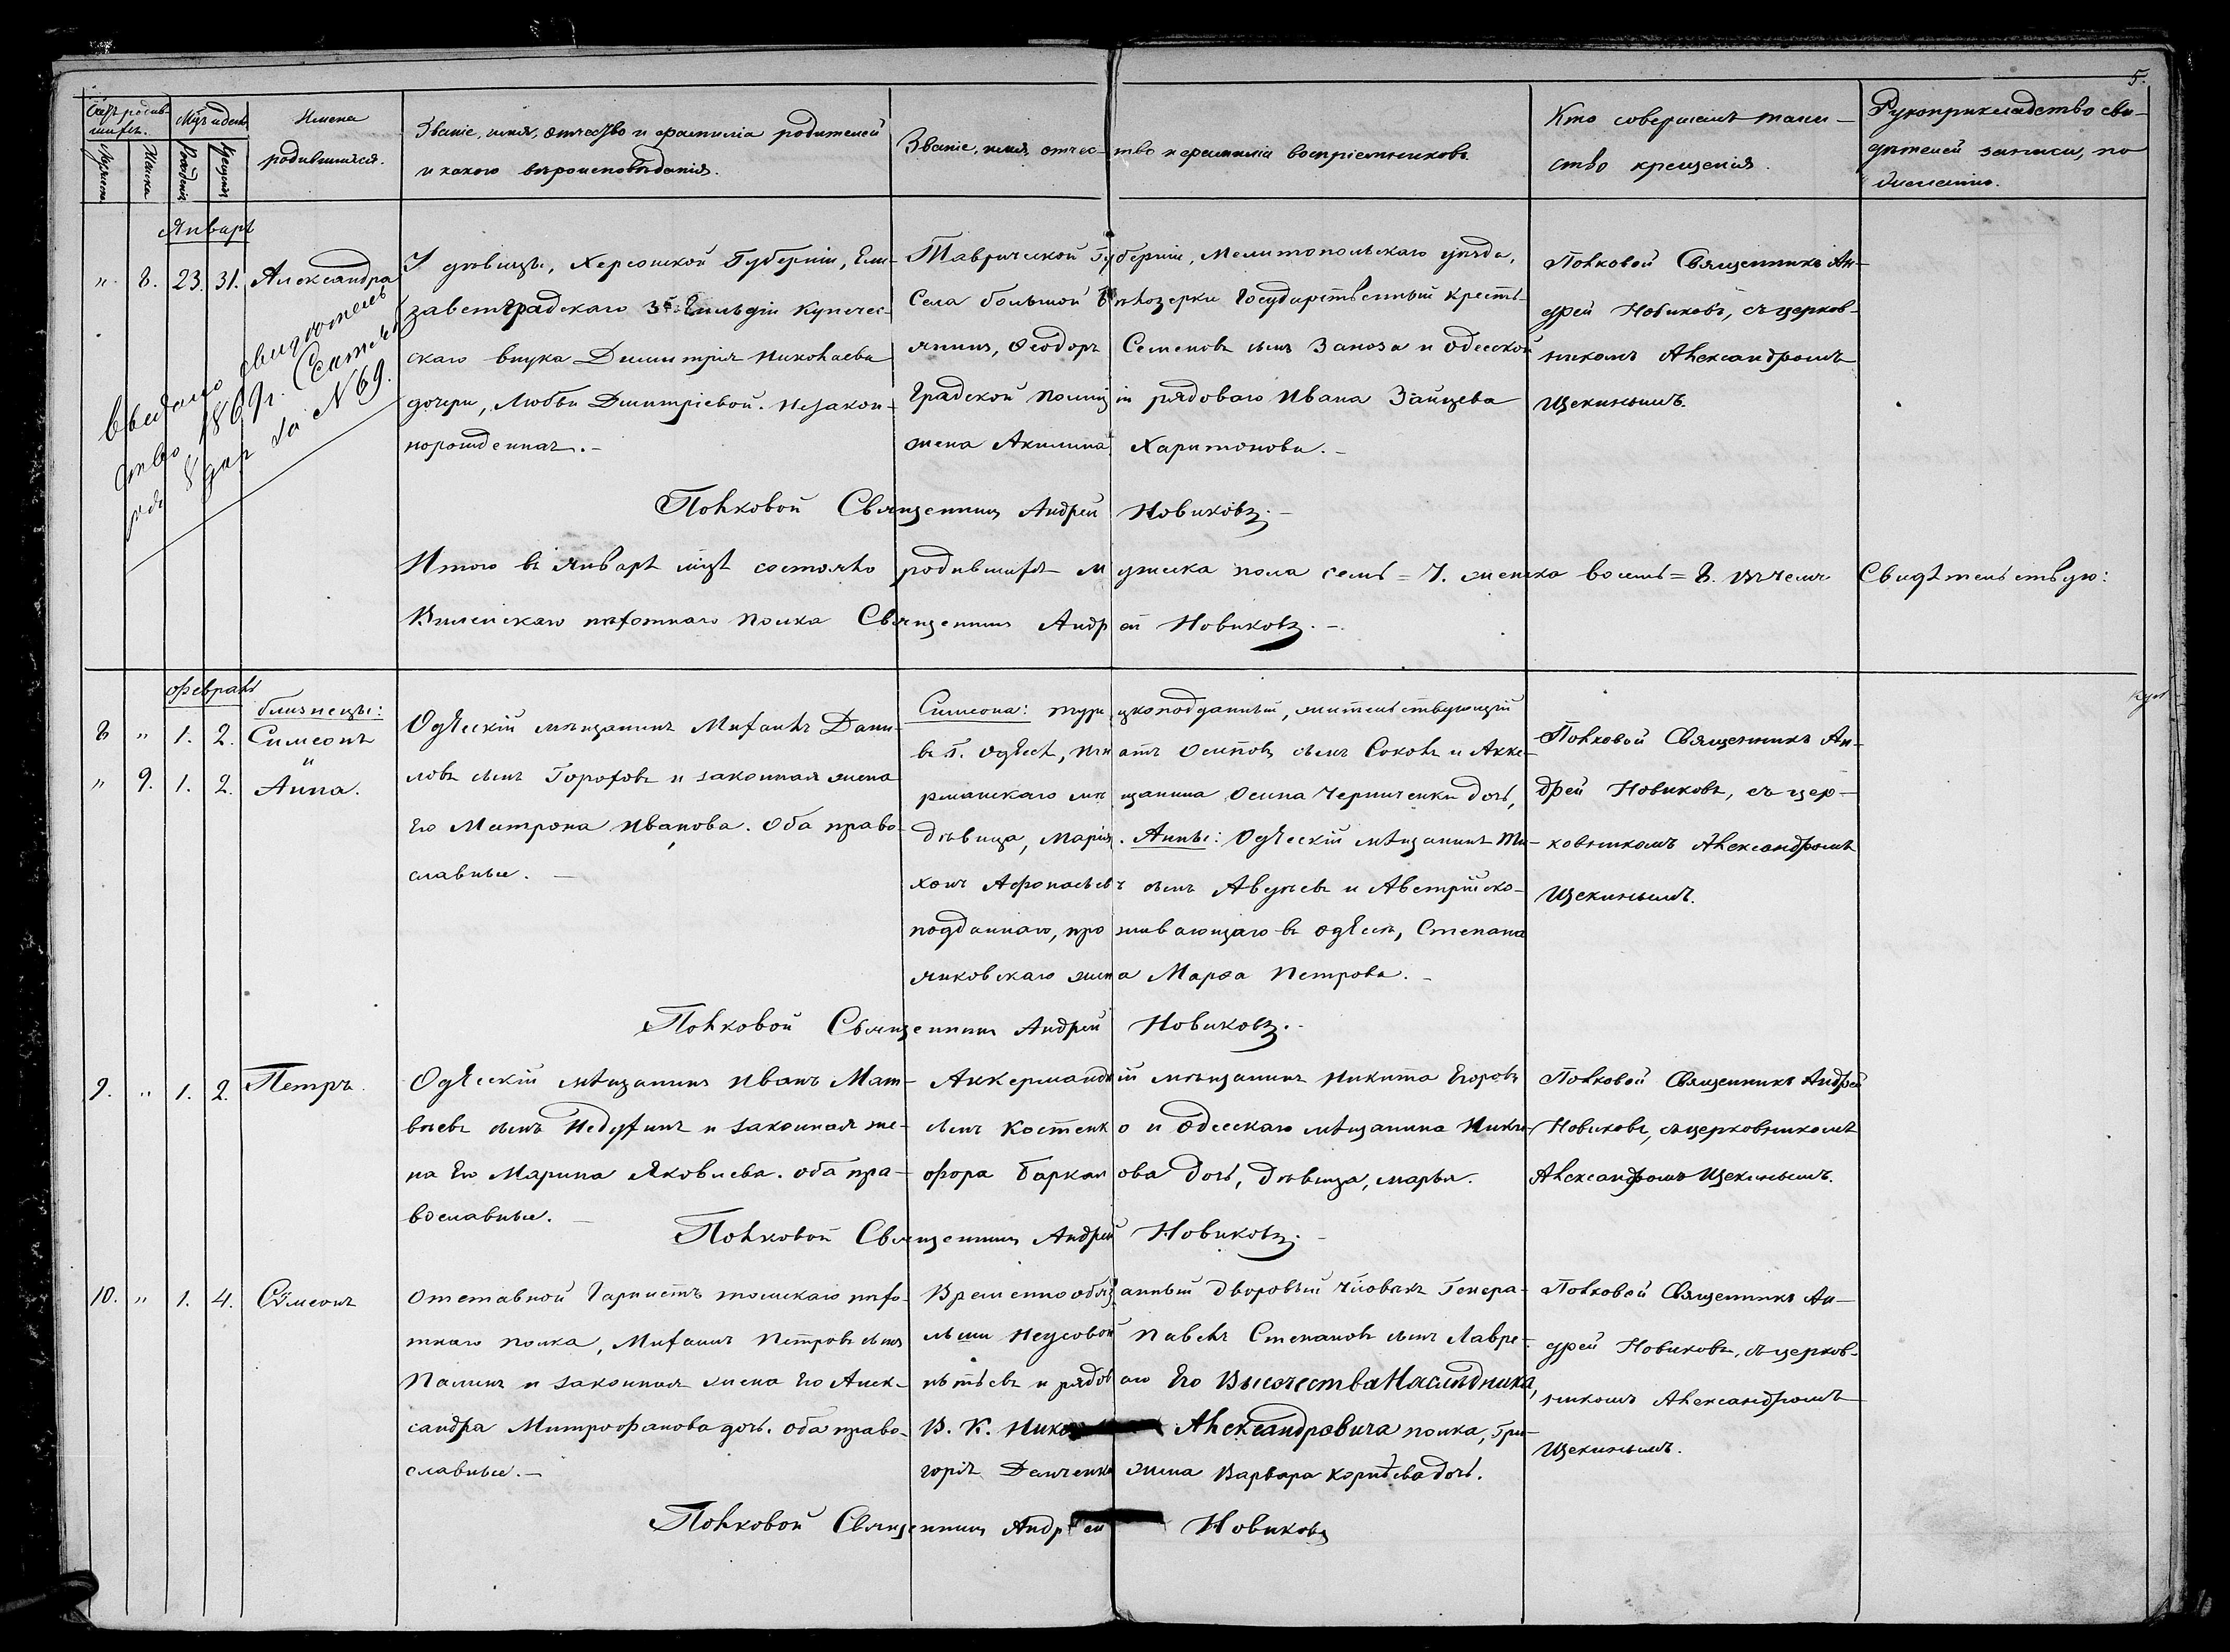 5.
Счетъ родив-
шихся.
Мужеска
Женска
Мцъ и день
Рожденія
Крещенія
Имена
родившихся.
Званіе, имя, отчество и фамилія родителей
и какого вѣроисповѣданія.
Званіе, имя, отчество и фамилія воспріемниковъ.
Кто совершалъ таин-
ство крещенія.
Рукоприкладство сви-
дѣтелей записи, по
желанію.
Январь
" 8. 23. 31. Александра
Выдано свидѣтель
ство 1869 г. Сентяб
ря 8 дня за N 69.
У дѣвицы, Херсонской Губерніи, Ели-
заветградскаго 3й Гильдіи купечес-
скаго внука Димитрія Николаева
дочери, Любви Дмитріевой. Незакон-
норожденная.-
Таврической Губерніи, Мелитопольскаго уѣзда,
Села большой Бѣлозерки Государственный кресть-
янинъ, Ѳеодоръ Семеновъ сынъ Заноза и Одесской
Градской полиціи рядоваго Ивана Зайцева
жена Акилина Харитонова.-
Полковой Священникъ Ан-
дрей Новиковъ, съ церков-
никомъ Александромъ
Щекинымъ.
Полковой Священникъ Андрей Новиковъ.-
Итого въ Январѣ мцѣ состояло родившихся мужеска пола семь = 7. женска восемь = 8. въ чемъ Свидѣтельствую:
Вилейскаго пѣхотнаго полка Священникъ Андрей Новиковъ.-
Февраль
близнецы:
8 " 1. 2. Симеонъ
и
" 9. 1. 2. Анна.
Одѣсскій мѣщанинъ Михаилъ Дани-
ловъ сынъ Гороховъ и законная жена
его Матрона Иванова. Оба право-
славные.-
Симеона: турецкоподданный, жительствующій
въ г. Одѣссѣ, Осиповъ сынъ Соколъ и Акке-
рманскаго мѣщанина Осипа Черниченки дочь,
дѣвица, Марія. Анны: Одѣсскій мѣщанинъ Ти-
хонъ Афонасьевъ сынъ Авдѣевъ и Австрійско-
подданнаго, проживающаго въ Одѣссѣ, Степана
Янковскаго жена Марѳа Петрова.-
Полковой Священникъ Ан-
дрей Новиковъ, съ цер-
ковникомъ Александромъ
Щекинымъ.
Полковой Священникъ Андрей Новиковъ.-
9. " 1. 2. Петръ.
Одѣсскій мѣщанинъ Иванъ Мат-
вѣевъ сынъ Недухинъ и законная же-
на его Марина Яковлева. оба пра-
вославные.-
Аккерманскій мѣщанинъ Никита Егоровъ
сынъ Костенко и Одесскаго мѣщанина Ники-
фора Баркалова дочь, дѣвица, марья.
Полковой Священникъ Андрей
Новиковъ, съ церковникомъ
Александромъ Щекинымъ.
Полковой Священникъ Андрей Новиковъ.-
10. " 1. 4. Сѵмеонъ
Отставной Гарнистъ томскаго пѣхо-
тнаго полка, Михаилъ Петровъ сынъ
Палинъ и законная жена его Алек-
сандра Митрофанова дочь. оба право-
славные.-
Временнообязанный дворовый человѣкъ Генера-
льши Неусовой Павелъ Степановъ сынъ Лавре-
нтьевъ и рядоваго Его Высочества Наслѣдника,
В. К. Нико Александровича полка, Гри-
горія Демченко жена Варвара Корнѣева дочь.
Полковой Священникъ Ан-
дрей Новиковъ, съ церков-
никомъ Александромъ
Щекинымъ.
Полковой Священникъ Андрей Новиковъ